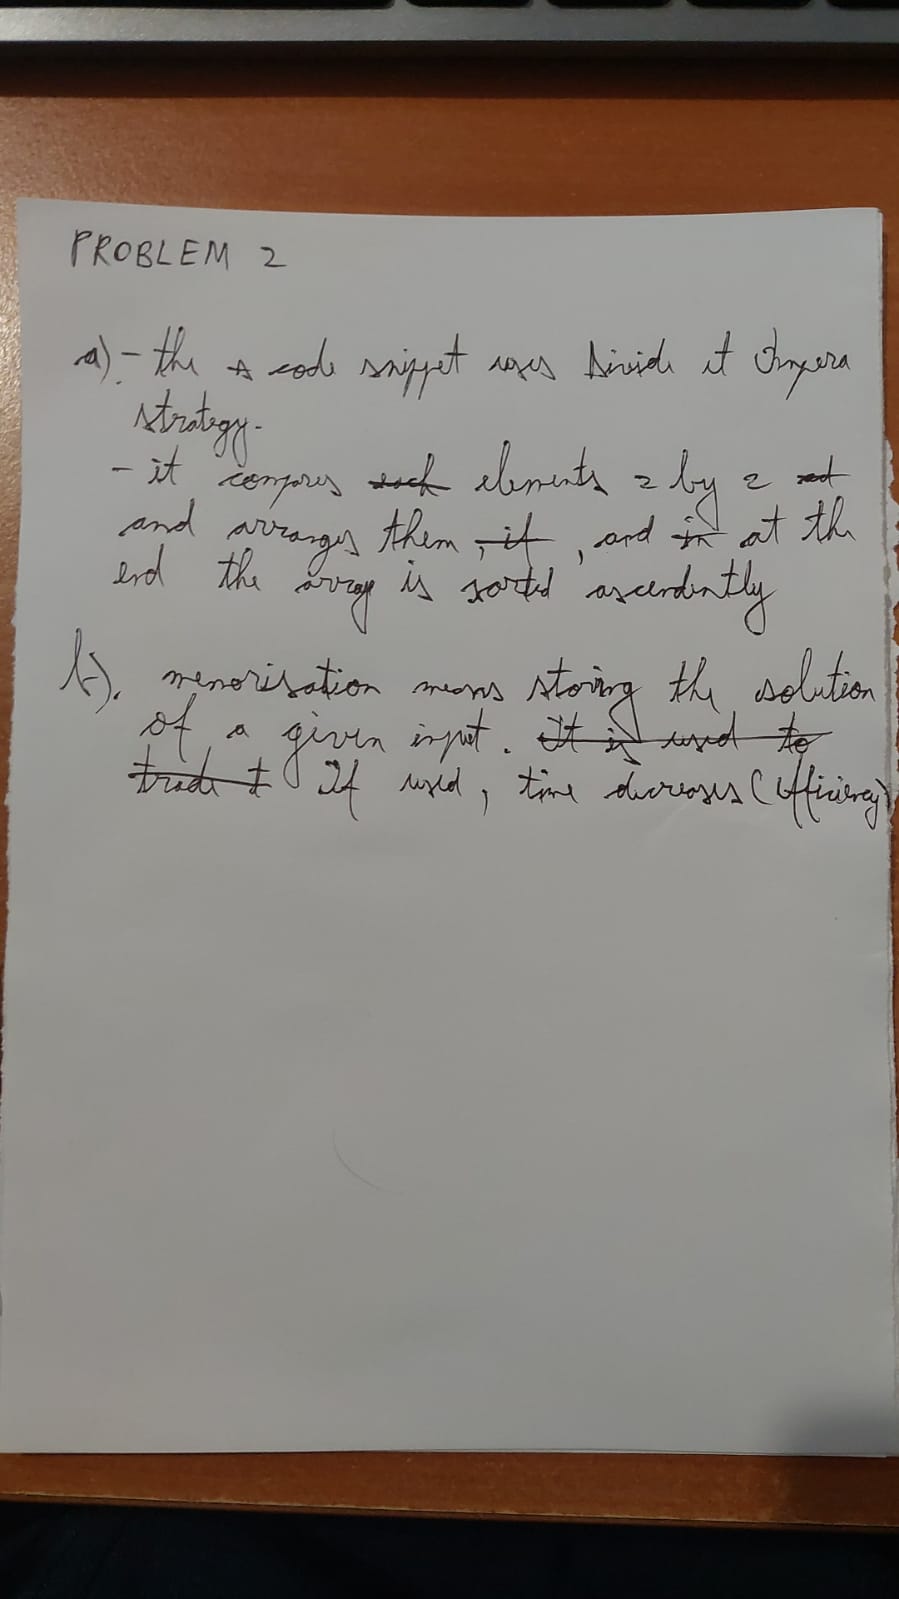 PROBLEM 2
a). - the code snippet uses Divide et Impera
strategy.
- it compares each elements 2 by 2
and arranges them , if , and in at the
end the array is sorted ascendently
b). memorisation means storing the solution
of a given input. It is used to
trade t If used, time decreases (efficiency)